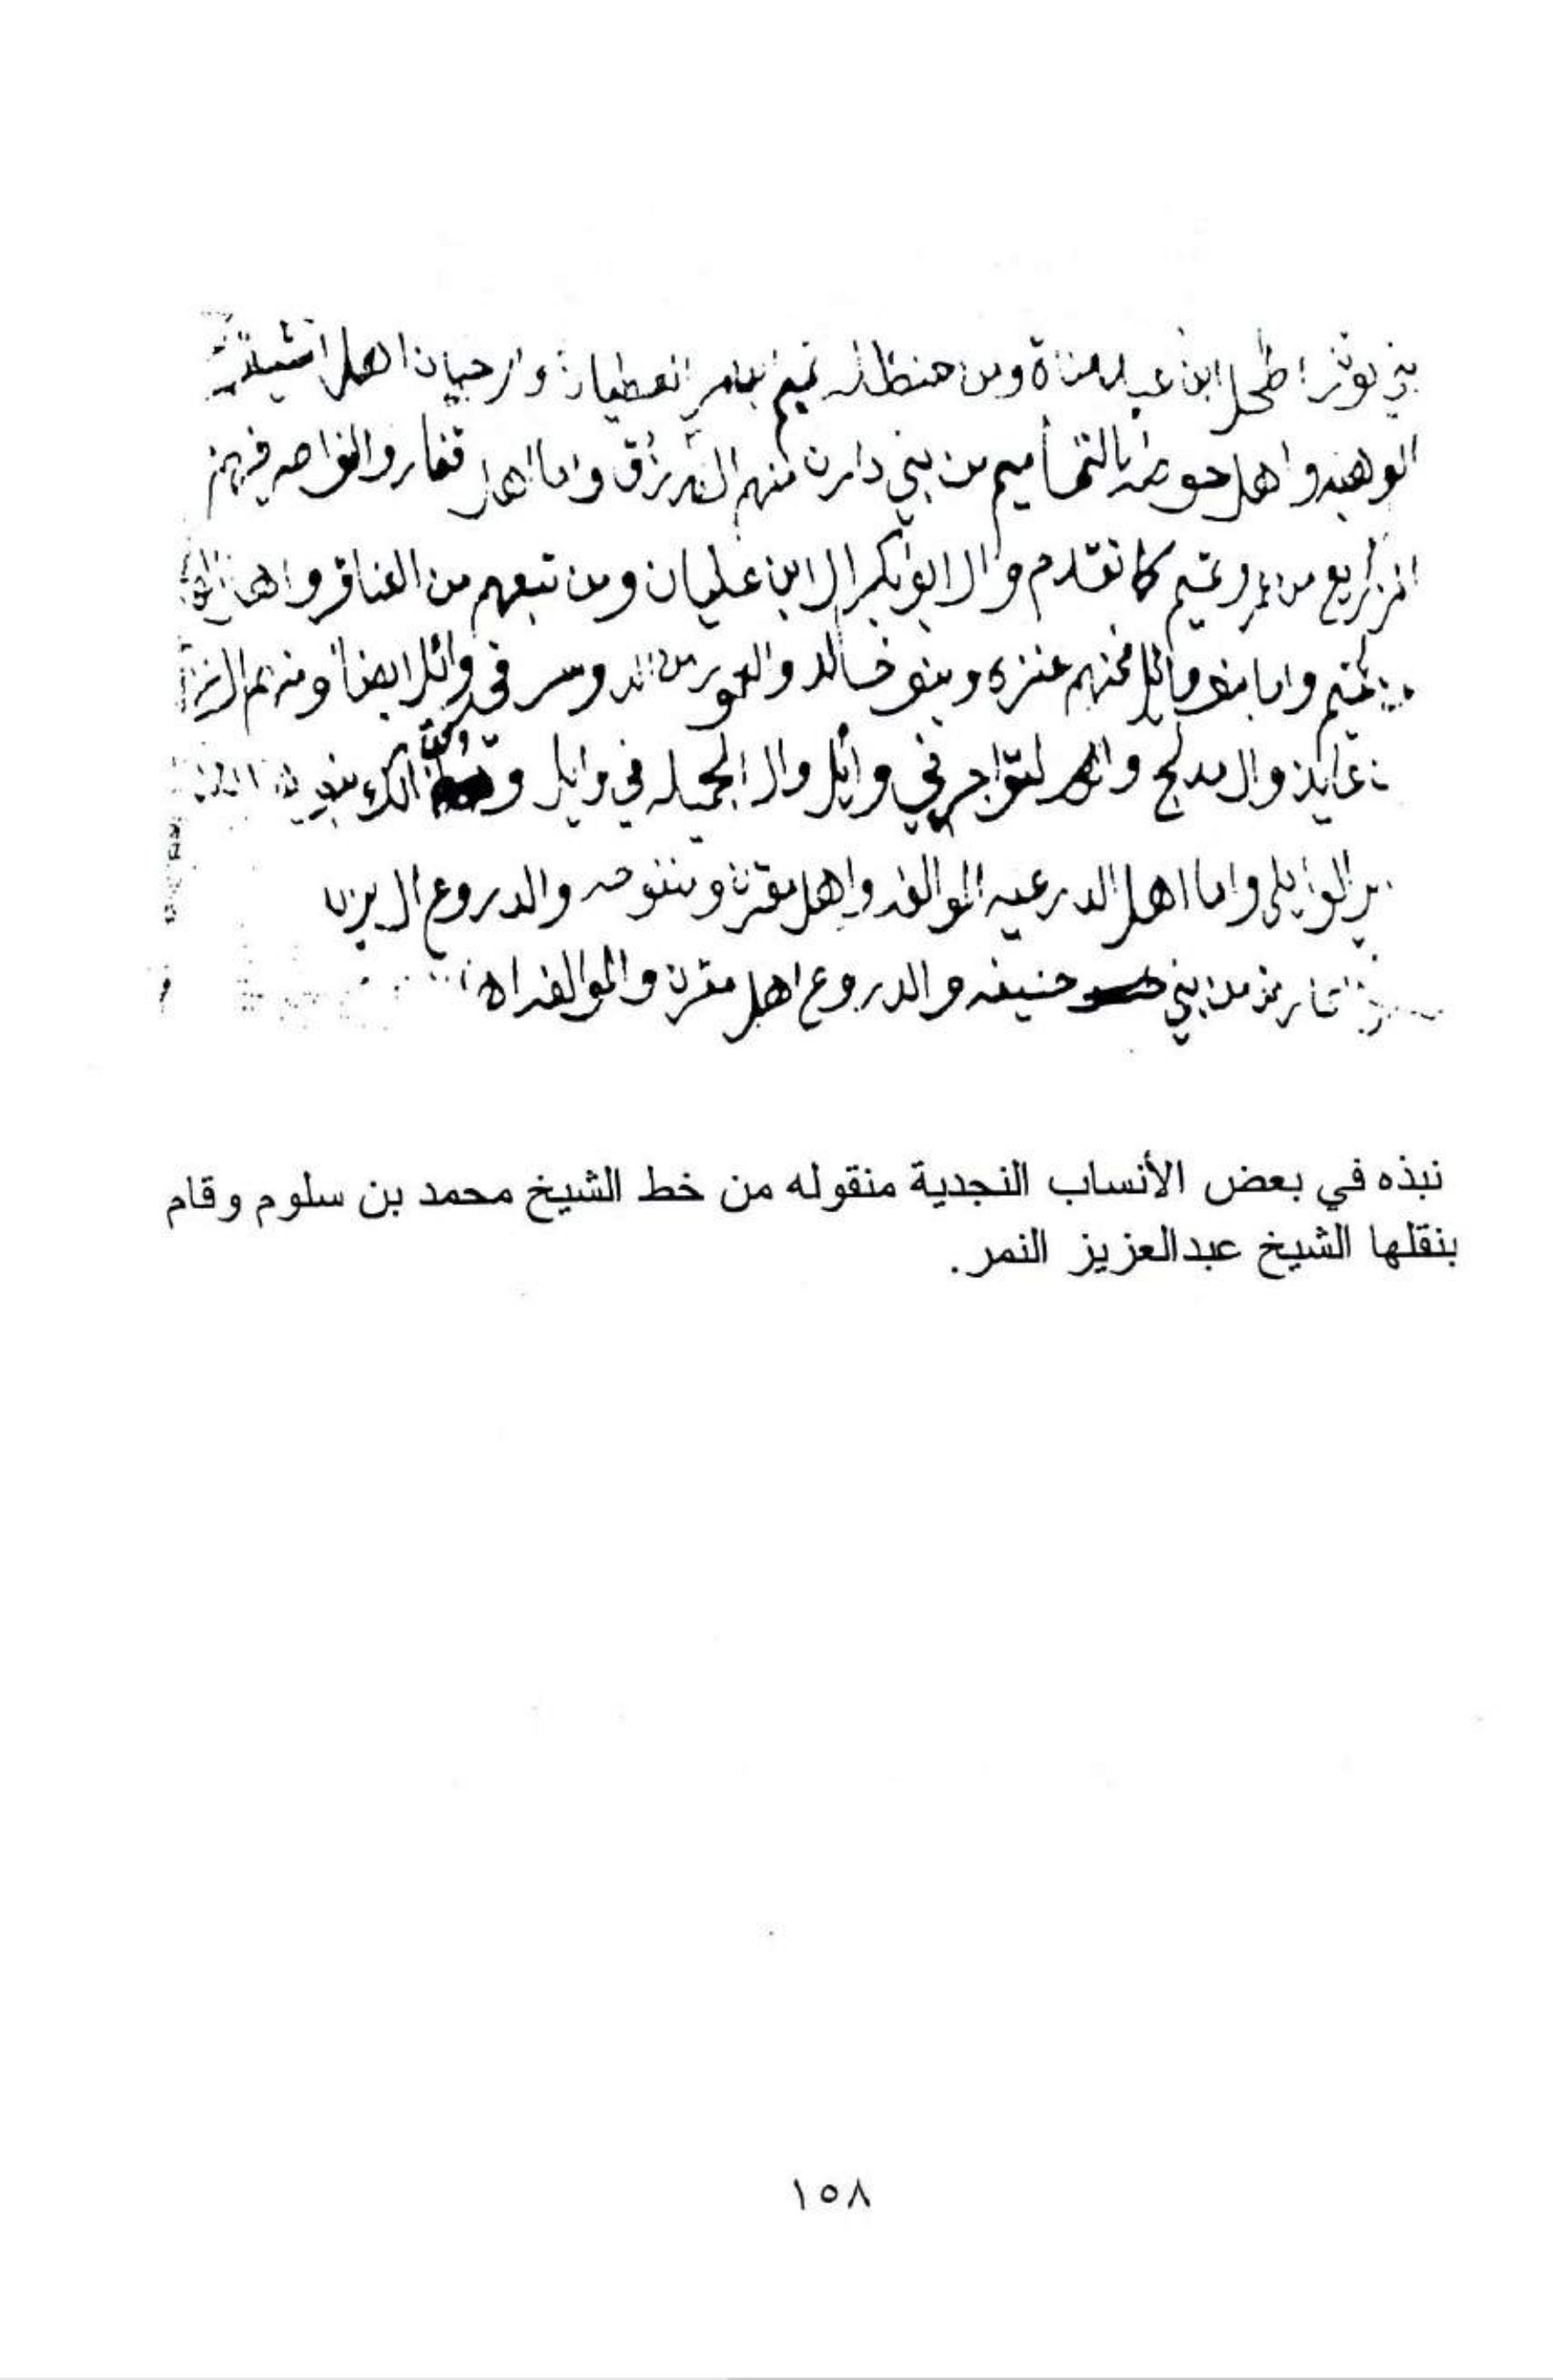 بني ثور اطحل ابن عبد مناة ومن حنظلة تميم العطيان وال رحيان اهل اشيقر
الوهبه واهل حوطة التماميم من بني دارم منهم الفرزدق واما اهل قفار والنواصر فهم
من عمرو تميم كما تقدم وال ابو بكر ال ابن عليان ومن تبعهم من العناقر واهل
تميم واما بنو وائل فمنهم عنزه وبنو خالد والعمور من الدوسر في وائل ايضا ومنهم ال
عايذ وال مدلج والتواجر في وائل وال الجميله في وايل
الوايلي واما اهل الدرعيه الموالفه واهل مقرن ومنفوحه والدروع ال يزيد
من بني حنيفه والدروع اهل مقرن والموالفه اه
نبذه في بعض الأنساب النجدية منقوله من خط الشيخ محمد بن سلوم وقام
بنقلها الشيخ عبدالعزيز النمر.
١٥٨